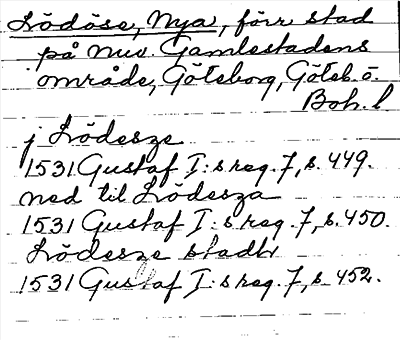 Lödöse, Nya, förr stad
på nuv. Gamlestadens
område, Göteborg, Göteb. o.
Boh. l
j Lödesze
1531 Gustaf I:s reg. 7, s. 449.
ned til Lödesza
1531 Gustaf I:s reg. 7, s. 450.
Lödesze stadh
1531 Gustaf I:s reg. 7, s. 452.